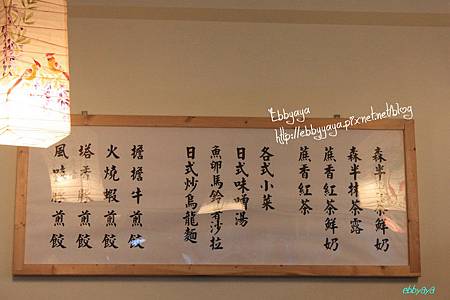 Ebbyaya
http://ebbyyaya.pixnet.net/blog
森半茶鮮奶
森半抹茶露
蔗香紅茶鮮奶
蔗香紅茶
各式小菜
日式味噌湯
魚卵馬鈴薯沙拉
日式炒烏龍麵
擔擔牛煎餃
火燒蝦煎餃
塔香煎餃
風味煎餃
ebbyaya